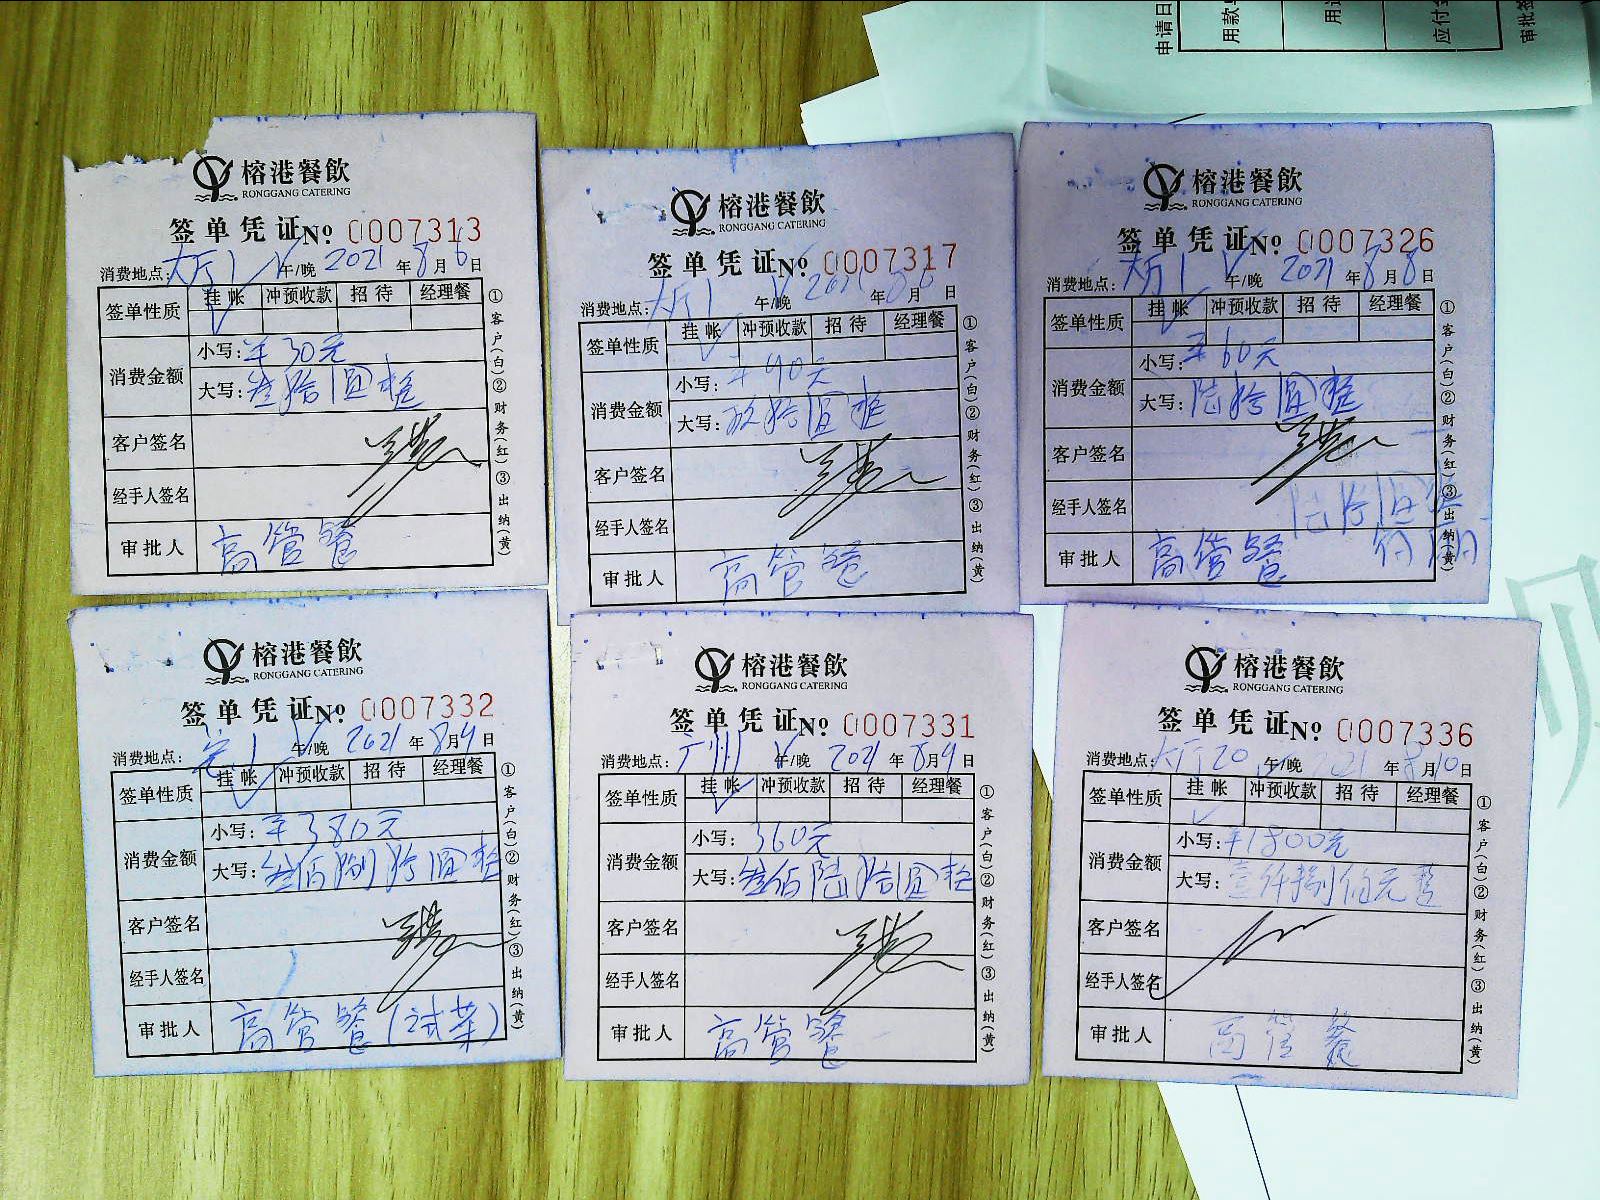 申请日
用款
用途
应付金
审批签
榕港餐飲
RONGGANG CATERING
签单凭证№ 0007313
消费地点：大厅1 午/晚 2021年8月6日
签单性质 挂帐 冲预收款 招待 经理餐
消费金额 小写：￥30元
大写：叁拾圆整
客户签名
经手人签名
审批人 高管餐
①客户(白)②财务(红)③出纳(黄)
榕港餐飲
RONGGANG CATERING
签单凭证№ 0007317
消费地点：大厅1 午/晚 2021年8月6日
签单性质 挂帐 冲预收款 招待 经理餐
消费金额 小写：￥90元
大写：玖拾圆整
客户签名
经手人签名
审批人 高管餐
①客户(白)②财务(红)③出纳(黄)
榕港餐飲
RONGGANG CATERING
签单凭证№ 0007326
消费地点：大厅1 午/晚 2021年8月8日
签单性质 挂帐 冲预收款 招待 经理餐
消费金额 小写：￥60元
大写：陆拾圆整
客户签名
经手人签名
审批人 高管餐
①客户(白)②财务(红)③出纳(黄)
榕港餐飲
RONGGANG CATERING
签单凭证№ 0007332
消费地点： 午/晚 2021年8月9日
签单性质 挂帐 冲预收款 招待 经理餐
消费金额 小写：￥380元
大写：叁佰捌拾圆整
客户签名
经手人签名
审批人 高管餐(试菜)
①客户(白)②财务(红)③出纳(黄)
榕港餐飲
RONGGANG CATERING
签单凭证№ 0007331
消费地点：广州 午/晚 2021年8月9日
签单性质 挂帐 冲预收款 招待 经理餐
消费金额 小写：360元
大写：叁佰陆拾圆整
客户签名
经手人签名
审批人 高管餐
①客户(白)②财务(红)③出纳(黄)
榕港餐飲
RONGGANG CATERING
签单凭证№ 0007336
消费地点：大厅20 午/晚 2021年8月10日
签单性质 挂帐 冲预收款 招待 经理餐
消费金额 小写：￥1800元
大写：壹仟捌佰元整
客户签名
经手人签名
审批人 高管餐
①客户(白)②财务(红)③出纳(黄)